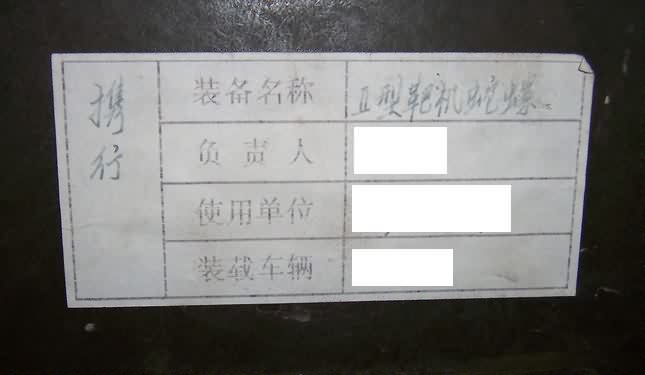 携行
装备名称 II型靶机陀螺
负责人
使用单位
装载车辆